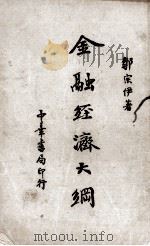 鄒宗伊著
金融经濟大綱
中華書局印行